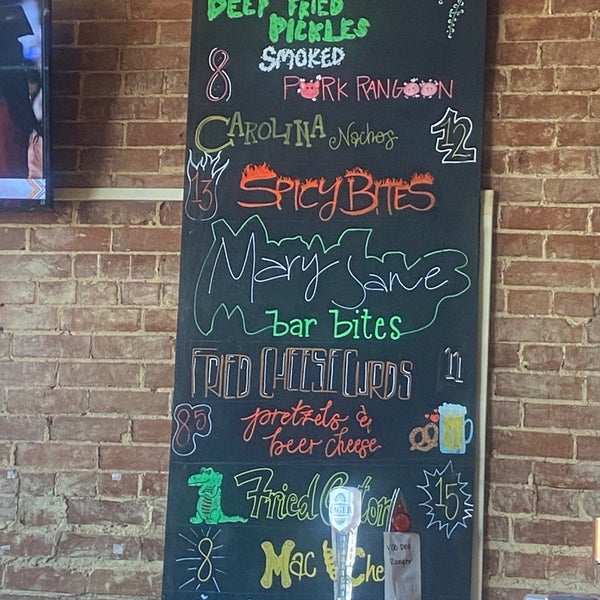 DEEP FRIED
PICKLES
SMOKED
8 PORK RANGOON
CAROLINA Nachos 12
13 SPICY BITES
Mary Jane
bar bites
FRIED CHEESE CURDS 11
85 pretzels &
beer cheese
Fried Gator 15
8 Mac & Che
LAGER